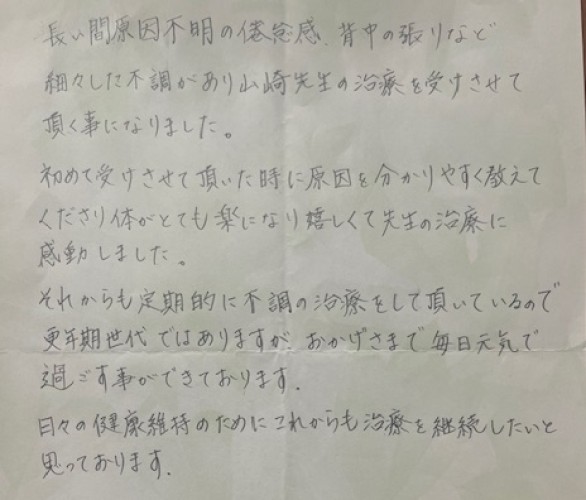 長い間原因不明の倦怠感、背中の張りなど
細々した不調があり山崎先生の治療を受けさせて
頂く事になりました。
初めて受けさせて頂いた時に原因を分かりやすく教えて
くださり体がとても楽になり嬉しくて先生の治療に
感動しました。
それからも定期的に不調の治療をして頂いているので
更年期世代ではありますが、おかげさまで毎日元気で
過ごす事ができております。
日々の健康維持のためにこれからも治療を継続したいと
思っております。